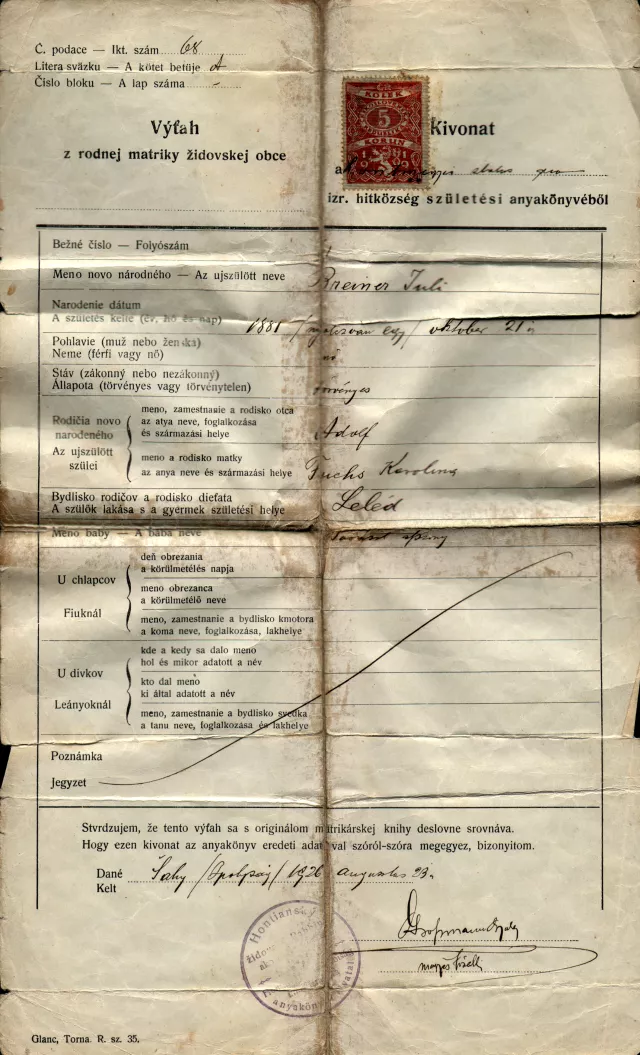 Č. podace — Ikt. szám 68
Litera sväzku — A kötet betűje A
Číslo bloku — A lap száma -
Výťah
z rodnej matriky židovskej obce
KOLEK
5
KORUN
Kivonat
a
izr. hitközség születési anyakönyvéből
Bežné číslo — Folyószám
Meno novo národného — Az ujszülött neve Breiner Juli
Narodenie dátum
A születés kelte (év, hó és nap) 1881 / egy / október 21 n
Pohlavie (muž nebo ženská)
Neme (férfi vagy nő) nő
Stáv (zákonný nebo nezákonný)
Állapota (törvényes vagy törvénytelen) törvényes
Rodičia novo narodeného
Az ujszülött szülei
meno, zamestnanie a rodisko otca
az atya neve, foglalkozása
és származási helye Adolf
meno a rodisko matky
az anya neve és származási helye Fuchs Karolina
Bydlisko rodičov a rodisko dieťata
A szülők lakása s a gyermek születési helye Leléd
Meno baby — A bába neve
U chlapcov
Fiuknál
deň obrezania
a körülmetélés napja
meno obrezanca
a körülmetélő neve
meno, zamestnanie a bydlisko kmotora
a koma neve, foglalkozása, lakhelye
U divkov
Leányoknál
kde a kedy sa dalo meno
hol és mikor adatott a név
kto dal meno
ki által adatott a név
meno, zamestnanie a bydlisko svedka
a tanu neve, foglalkozása és lakhelye
Poznámka
Jegyzet
Stvrdzujem, že tento výťah sa s originálom matrikárskej knihy deslovne srovnáva.
Hogy ezen kivonat az anyakönyv eredeti adatával szóról-szóra megegyez, bizonyitom.
Dané
Kelt Šahy /Ipolyság/ 1926 augusztus 23n
Hontiansky
anyakönyvi
Glanc, Torna. R. sz. 35.